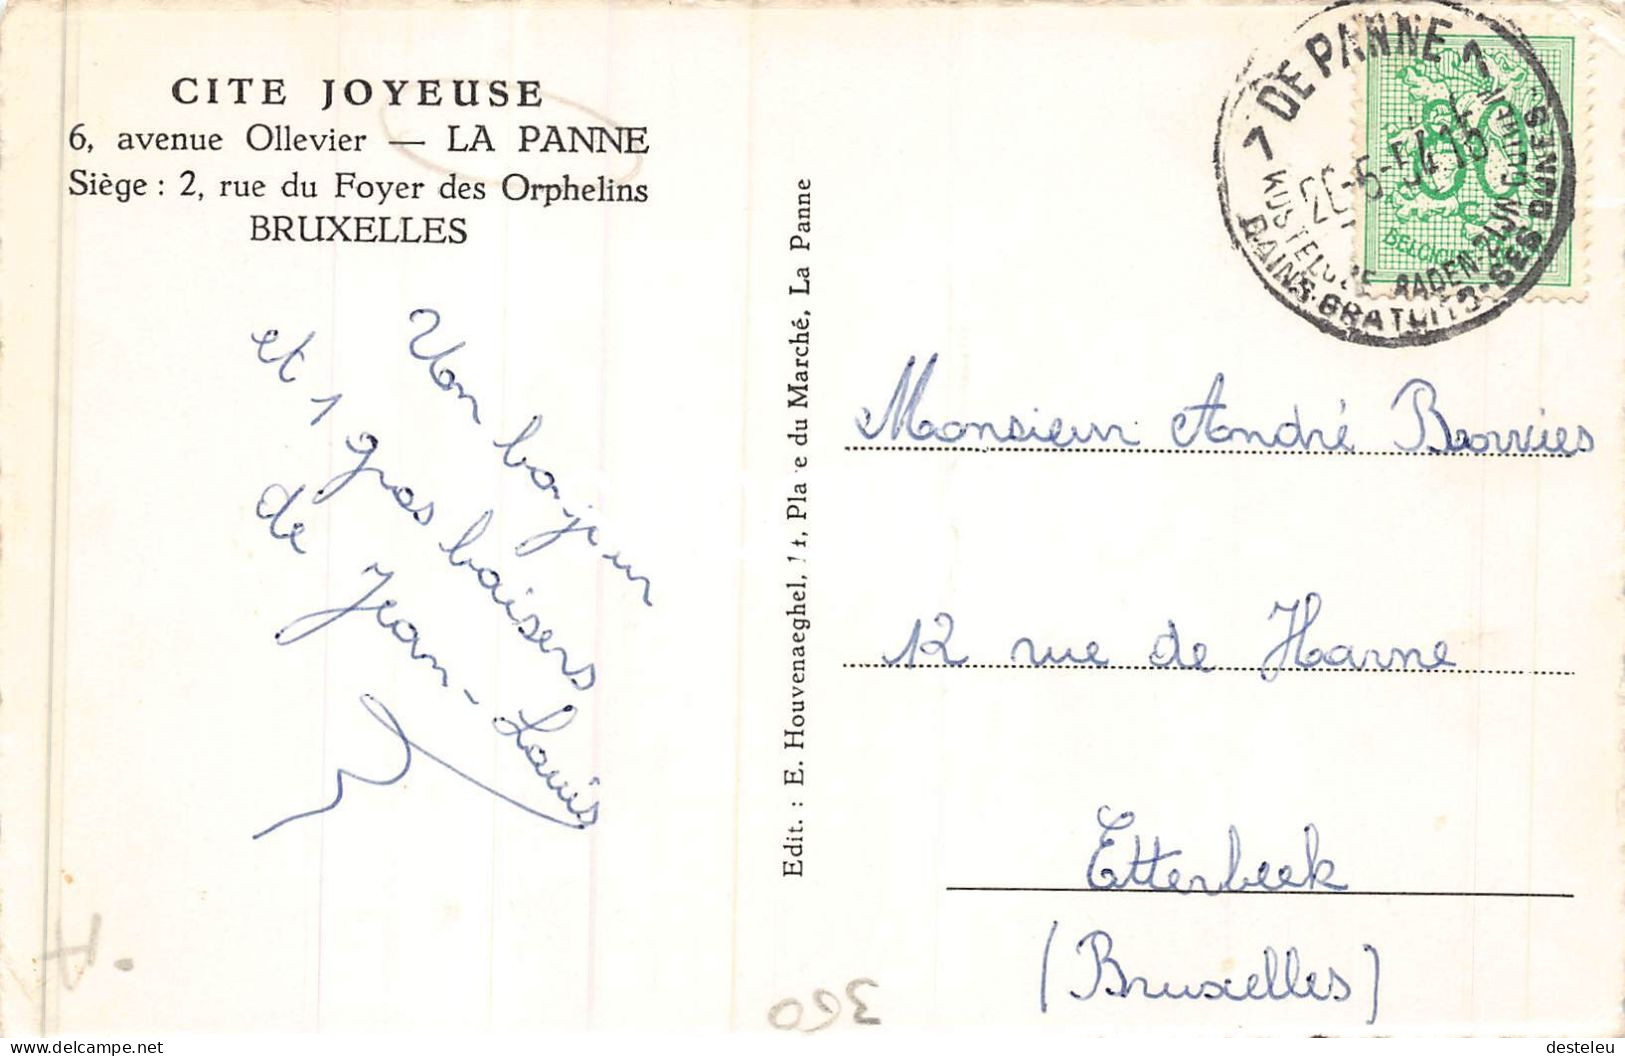 CITE JOYEUSE
6, avenue Ollevier — LA PANNE
Siège : 2, rue du Foyer des Orphelins
BRUXELLES
Un bon bonjour
et 1 gros baisers
de Jean-Louis
Edit. : E. Houvenaeghel, Place du Marché, La Panne
7 DE PANNE 7
26-6-54 15
BAINS GRATUITS • SES DUNES
BELGIQUE
Monsieur André
12 rue de Harne
Etterbeek
(Bruxelles)
360
H.
desteleu